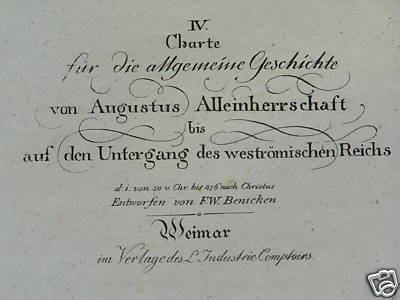 IV.
Charte
für die allgemeine Geschichte
von Augustus Alleinherrschaft
bis
auf den Untergang des weströmischen Reichs
d. i. von 30 v. Chr. bis 476 nach Christus
Entworfen von F.W. Benicken
Weimar
im Verlage des L. Industrie Comptoirs.